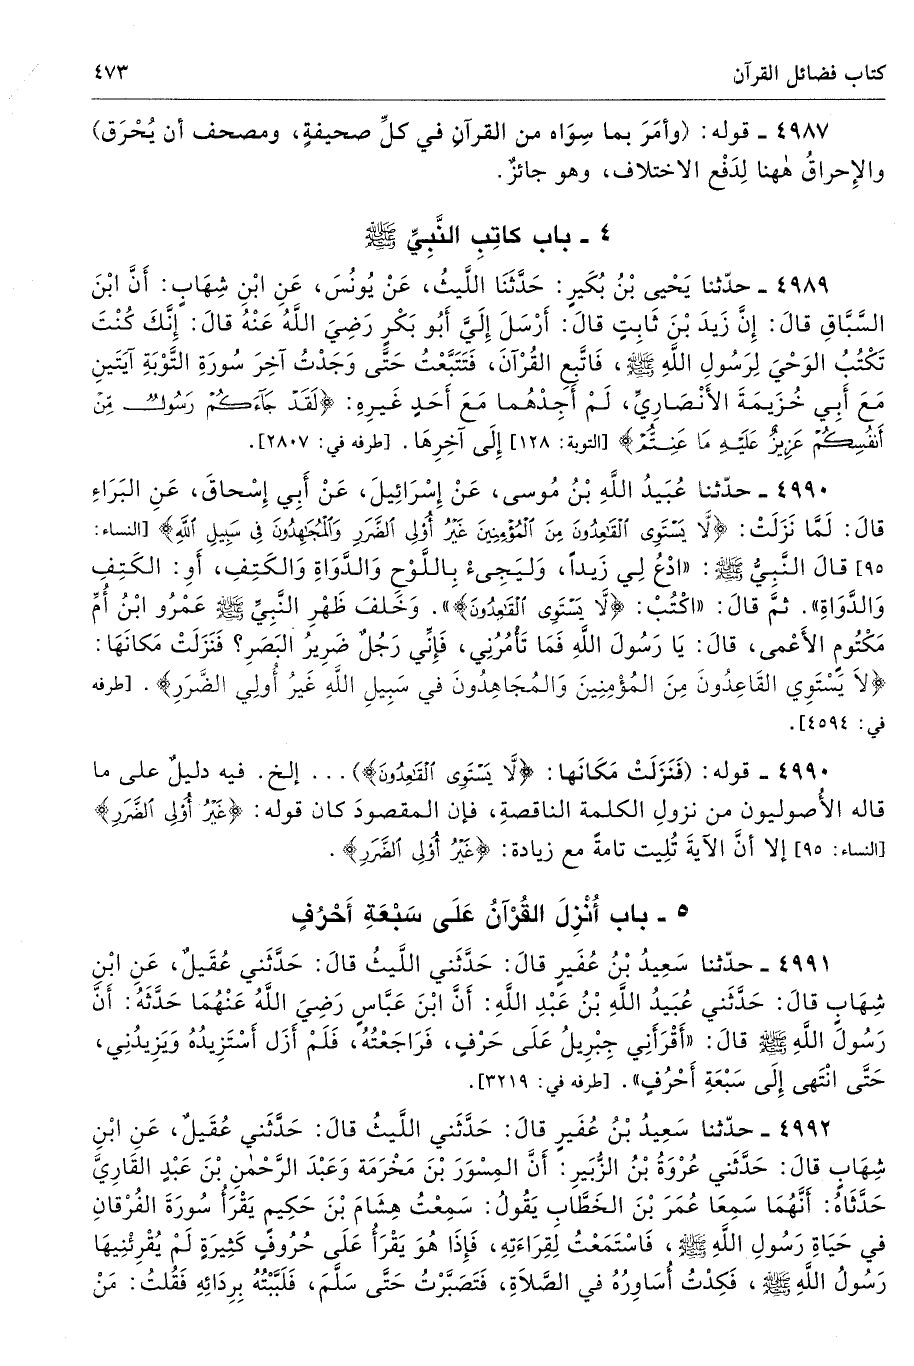 كتاب فضائل القرآن ٤٧٣
٤٩٨٧ ـ قوله: (وأمَرَ بما سِوَاه من القرآنِ في كلِّ صحيفةٍ، ومصحف أن يُحْرَق)
والإِحراقُ هٰهنا لِدَفْع الاختلاف، وهو جائزٌ.
٤ ـ باب كاتِبِ النَّبِيِّ ﷺ
٤٩٨٩ ـ حدّثنا يَحْيى بْنُ بُكَيرٍ: حَدَّثَنَا اللَّيثُ، عَنْ يُونُسَ، عَنِ ابْنِ شِهَابٍ: أَنَّ ابْنَ
السَّبَّاقِ قالَ: إِنَّ زَيدَ بْنَ ثَابِتٍ قالَ: أَرْسَلَ إِلَيَّ أَبُو بَكْرٍ رَضِيَ اللَّهُ عَنْهُ قالَ: إِنَّكَ كُنْتَ
تَكْتُبُ الوَحْيَ لِرَسُولِ اللَّهِ ﷺ، فَاتَّبِعِ القُرْآنَ، فَتَتَبَّعْتُ حَتَّى وَجَدْتُ آخِرَ سُورَةِ التَّوْبَةِ آيَتَينِ
مَعَ أَبِي خُزَيمَةَ الأَنْصَارِيِّ، لَمْ أَجِدْهُما مَعَ أَحَدٍ غَيرِهِ: ﴿لَقَدْ جَآءَكُمْ رَسُولٌ مِّنْ
أَنفُسِكُمْ عَزِيزٌ عَلَيْهِ مَا عَنِتُّمْ﴾ [التوبة: ١٢٨] إِلَى آخِرِهَا. [طرفه في: ٢٨٠٧].
٤٩٩٠ ـ حدّثنا عُبَيدُ اللَّهِ بْنُ مُوسى، عَنْ إِسْرَائِيلَ، عَنْ أَبِي إِسْحاقَ، عَنِ البَرَاءِ
قالَ: لَمَّا نَزَلَتْ: ﴿لَّا يَسْتَوِى ٱلْقَٰعِدُونَ مِنَ ٱلْمُؤْمِنِينَ غَيْرُ أُوْلِى ٱلضَّرَرِ وَٱلْمُجَٰهِدُونَ فِى سَبِيلِ ٱللَّهِ﴾ [النساء:
٩٥] قالَ النَّبِيُّ ﷺ: «ادْعُ لِي زَيداً، وَليَجِىءْ بِاللَّوْحِ وَالدَّوَاةِ وَالكَتِفِ، أَو: الكَتِفِ
وَالدَّوَاةِ». ثمَّ قالَ: «اكْتُبْ: ﴿لَّا يَسْتَوِى ٱلْقَٰعِدُونَ﴾». وَخَلفَ ظَهْرِ النَّبِيِّ ﷺ عَمْرُو ابْنُ أُمِّ
مَكْتُومٍ الأَعْمى، قالَ: يَا رَسُولَ اللَّهِ فَمَا تَأْمُرُنِي، فَإِنِّي رَجُلٌ ضَرِيرُ البَصَرِ؟ فَنَزَلَتْ مَكانَهَا:
﴿لاَ يَسْتَوِي القَاعِدُونَ مِنَ المُؤْمِنِينَ وَالمُجَاهِدُونَ في سَبِيلِ اللَّهِ غَيرُ أُولِي الضَّرَرِ﴾. [طرفه
في: ٤٥٩٤].
٤٩٩٠ ـ قوله: (فَنَزَلَتْ مَكَانَها: ﴿لَّا يَسْتَوِى ٱلْقَٰعِدُونَ﴾)... إلخ. فيه دليلٌ على ما
قاله الأُصوليون من نزولِ الكلمة الناقصةِ، فإن المقصودَ كان قوله: ﴿غَيْرُ أُوْلِى ٱلضَّرَرِ﴾
[النساء: ٩٥] إلا أنَّ الآيةَ تُلِيت تامةً مع زيادة: ﴿غَيْرُ أُوْلِى ٱلضَّرَرِ﴾.
٥ ـ باب أُنْزِلَ القُرْآنُ عَلَى سَبْعَةِ أَحْرُفٍ
٤٩٩١ ـ حدّثنا سَعِيدُ بْنُ عُفَيرٍ قالَ: حَدَّثَنِي اللَّيثُ قالَ: حَدَّثَنِي عُقَيلٌ، عَنِ ابْنِ
شِهَابٍ قالَ: حَدَّثَنِي عُبَيدُ اللَّهِ بْنُ عَبْدِ اللَّهِ: أَنَّ ابْنَ عَبَّاسٍ رَضِيَ اللَّهُ عَنْهُمَا حَدَّثَهُ: أَنَّ
رَسُولَ اللَّهِ ﷺ قالَ: «أَقْرَأَنِي جِبْرِيلُ عَلَى حَرْفٍ، فَرَاجَعْتُهُ، فَلَمْ أَزَل أَسْتَزِيدُهُ وَيَزِيدُنِي،
حَتَّى انْتَهى إِلَى سَبْعَةِ أَحْرُفٍ». [طرفه في: ٣٢١٩].
٤٩٩٢ ـ حدّثنا سَعِيدُ بْنُ عُفَيرٍ قالَ: حَدَّثَنِي اللَّيثُ قالَ: حَدَّثَنِي عُقَيلٌ، عَنِ ابْنِ
شِهَابٍ قالَ: حَدَّثَنِي عُرْوَةُ بْنُ الزُّبَيرِ: أَنَّ المِسْوَرَ بْنَ مَخْرَمَةَ وَعَبْدَ الرَّحْمٰنِ بْنَ عَبْدٍ القَارِيَّ
حَدَّثَاهُ: أَنَّهُمَا سَمِعَا عُمَرَ بْنَ الخَطَّابِ يَقُولُ: سَمِعْتُ هِشَامَ بْنَ حَكِيمٍ يَقْرَأُ سُورَةَ الفُرْقانِ
في حَيَاةِ رَسُولِ اللَّهِ ﷺ، فَاسْتَمَعْتُ لِقِرَاءَتِهِ، فَإِذَا هُوَ يَقْرَأُ عَلَى حُرُوفٍ كَثِيرَةٍ لَمْ يُقْرِئْنِيهَا
رَسُولُ اللَّهِ ﷺ، فَكِدْتُ أُسَاوِرُهُ في الصَّلاَةِ، فَتَصَبَّرْتُ حَتَّى سَلَّمَ، فَلَبَّبْتُهُ بِرِدَائِهِ فَقُلتُ: مَنْ